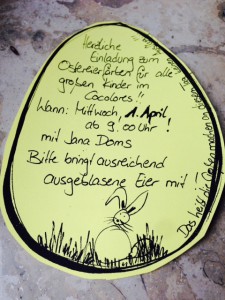 Herzliche
Einladung zum
Ostereierfärben für alle
großen Kinder im
Cocolores!!
Wann: Mittwoch, 1. April
ab 9.00 Uhr!
mit Jana Doms
Bitte bringt ausreichend
ausgeblasene Eier mit!!
Das heißt die